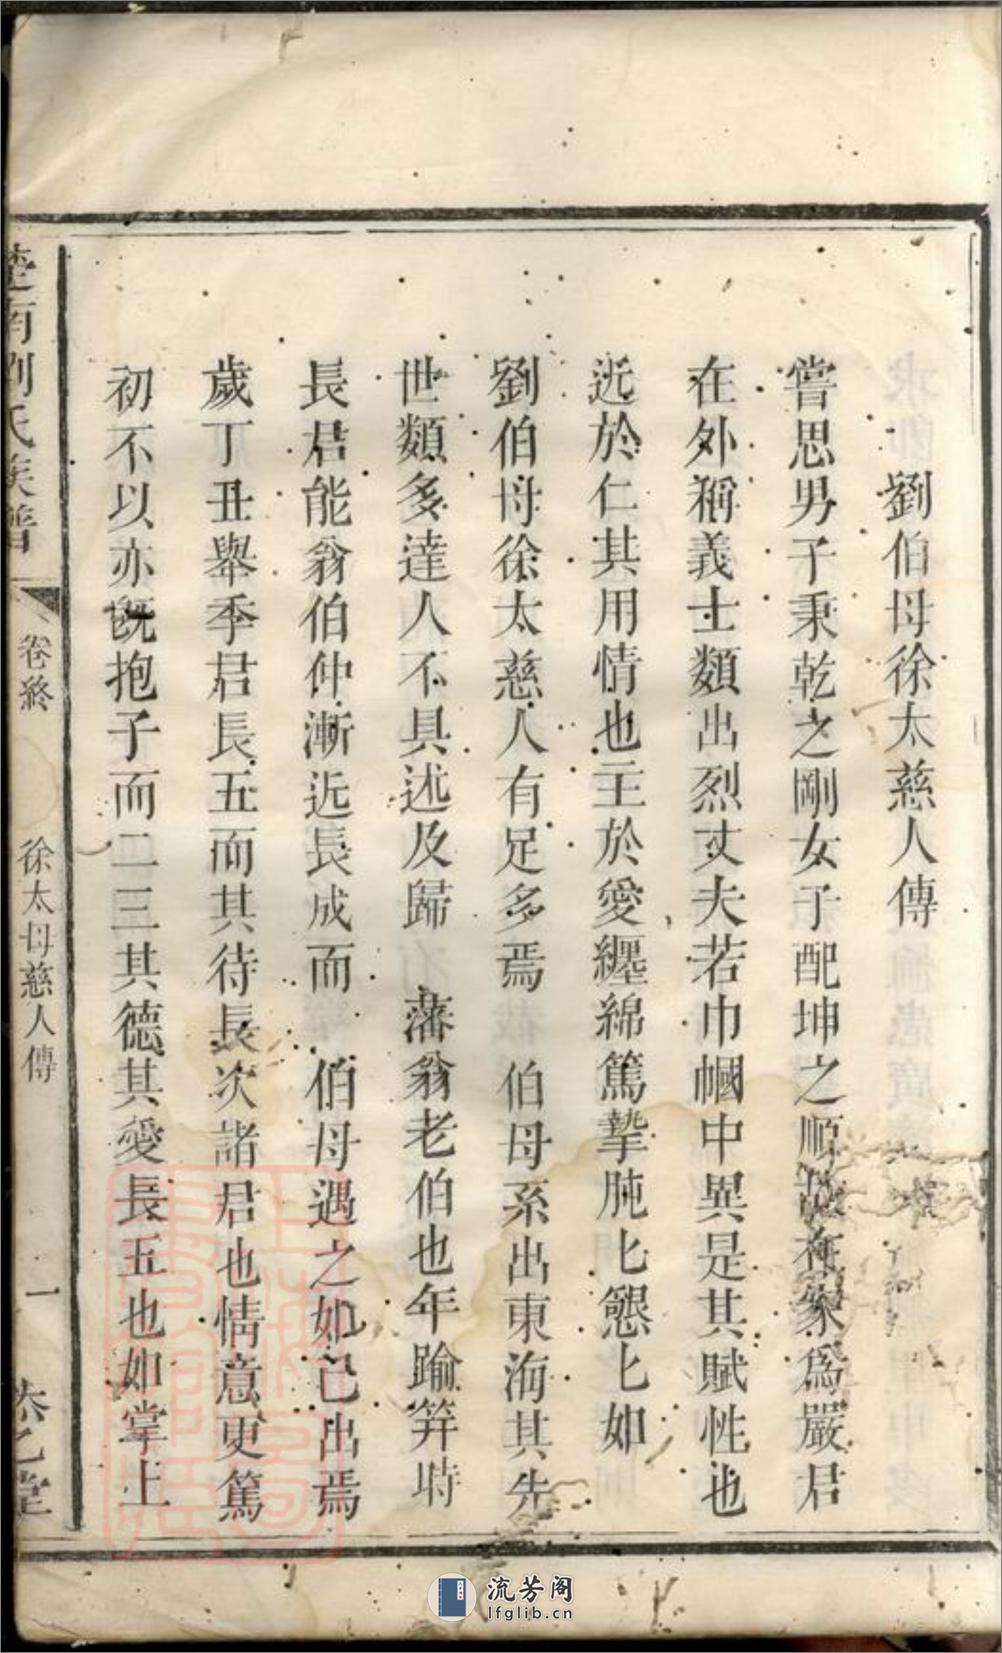 劉伯母徐太慈人傳
嘗思男子秉乾之剛女子配坤之順故在家為嚴君
在外稱義士類出烈丈夫若巾幗中異是其賦性也
近於仁其用情也主於愛纏綿篤摯肫〻懇〻如
劉伯母徐太慈人有足多焉　伯母系出東海其先
世類多達人不具述及歸　藩翁老伯也年踰笄時
長君能翁伯仲漸近長成而　伯母遇之如己出焉
歲丁丑舉季君長五而其待長次諸君也情意更篤
初不以亦既抱子而二三其德其愛長五也如掌上
楚南劉氏族譜　卷終　徐太母慈人傳　一
流芳阁
lfglib.cn